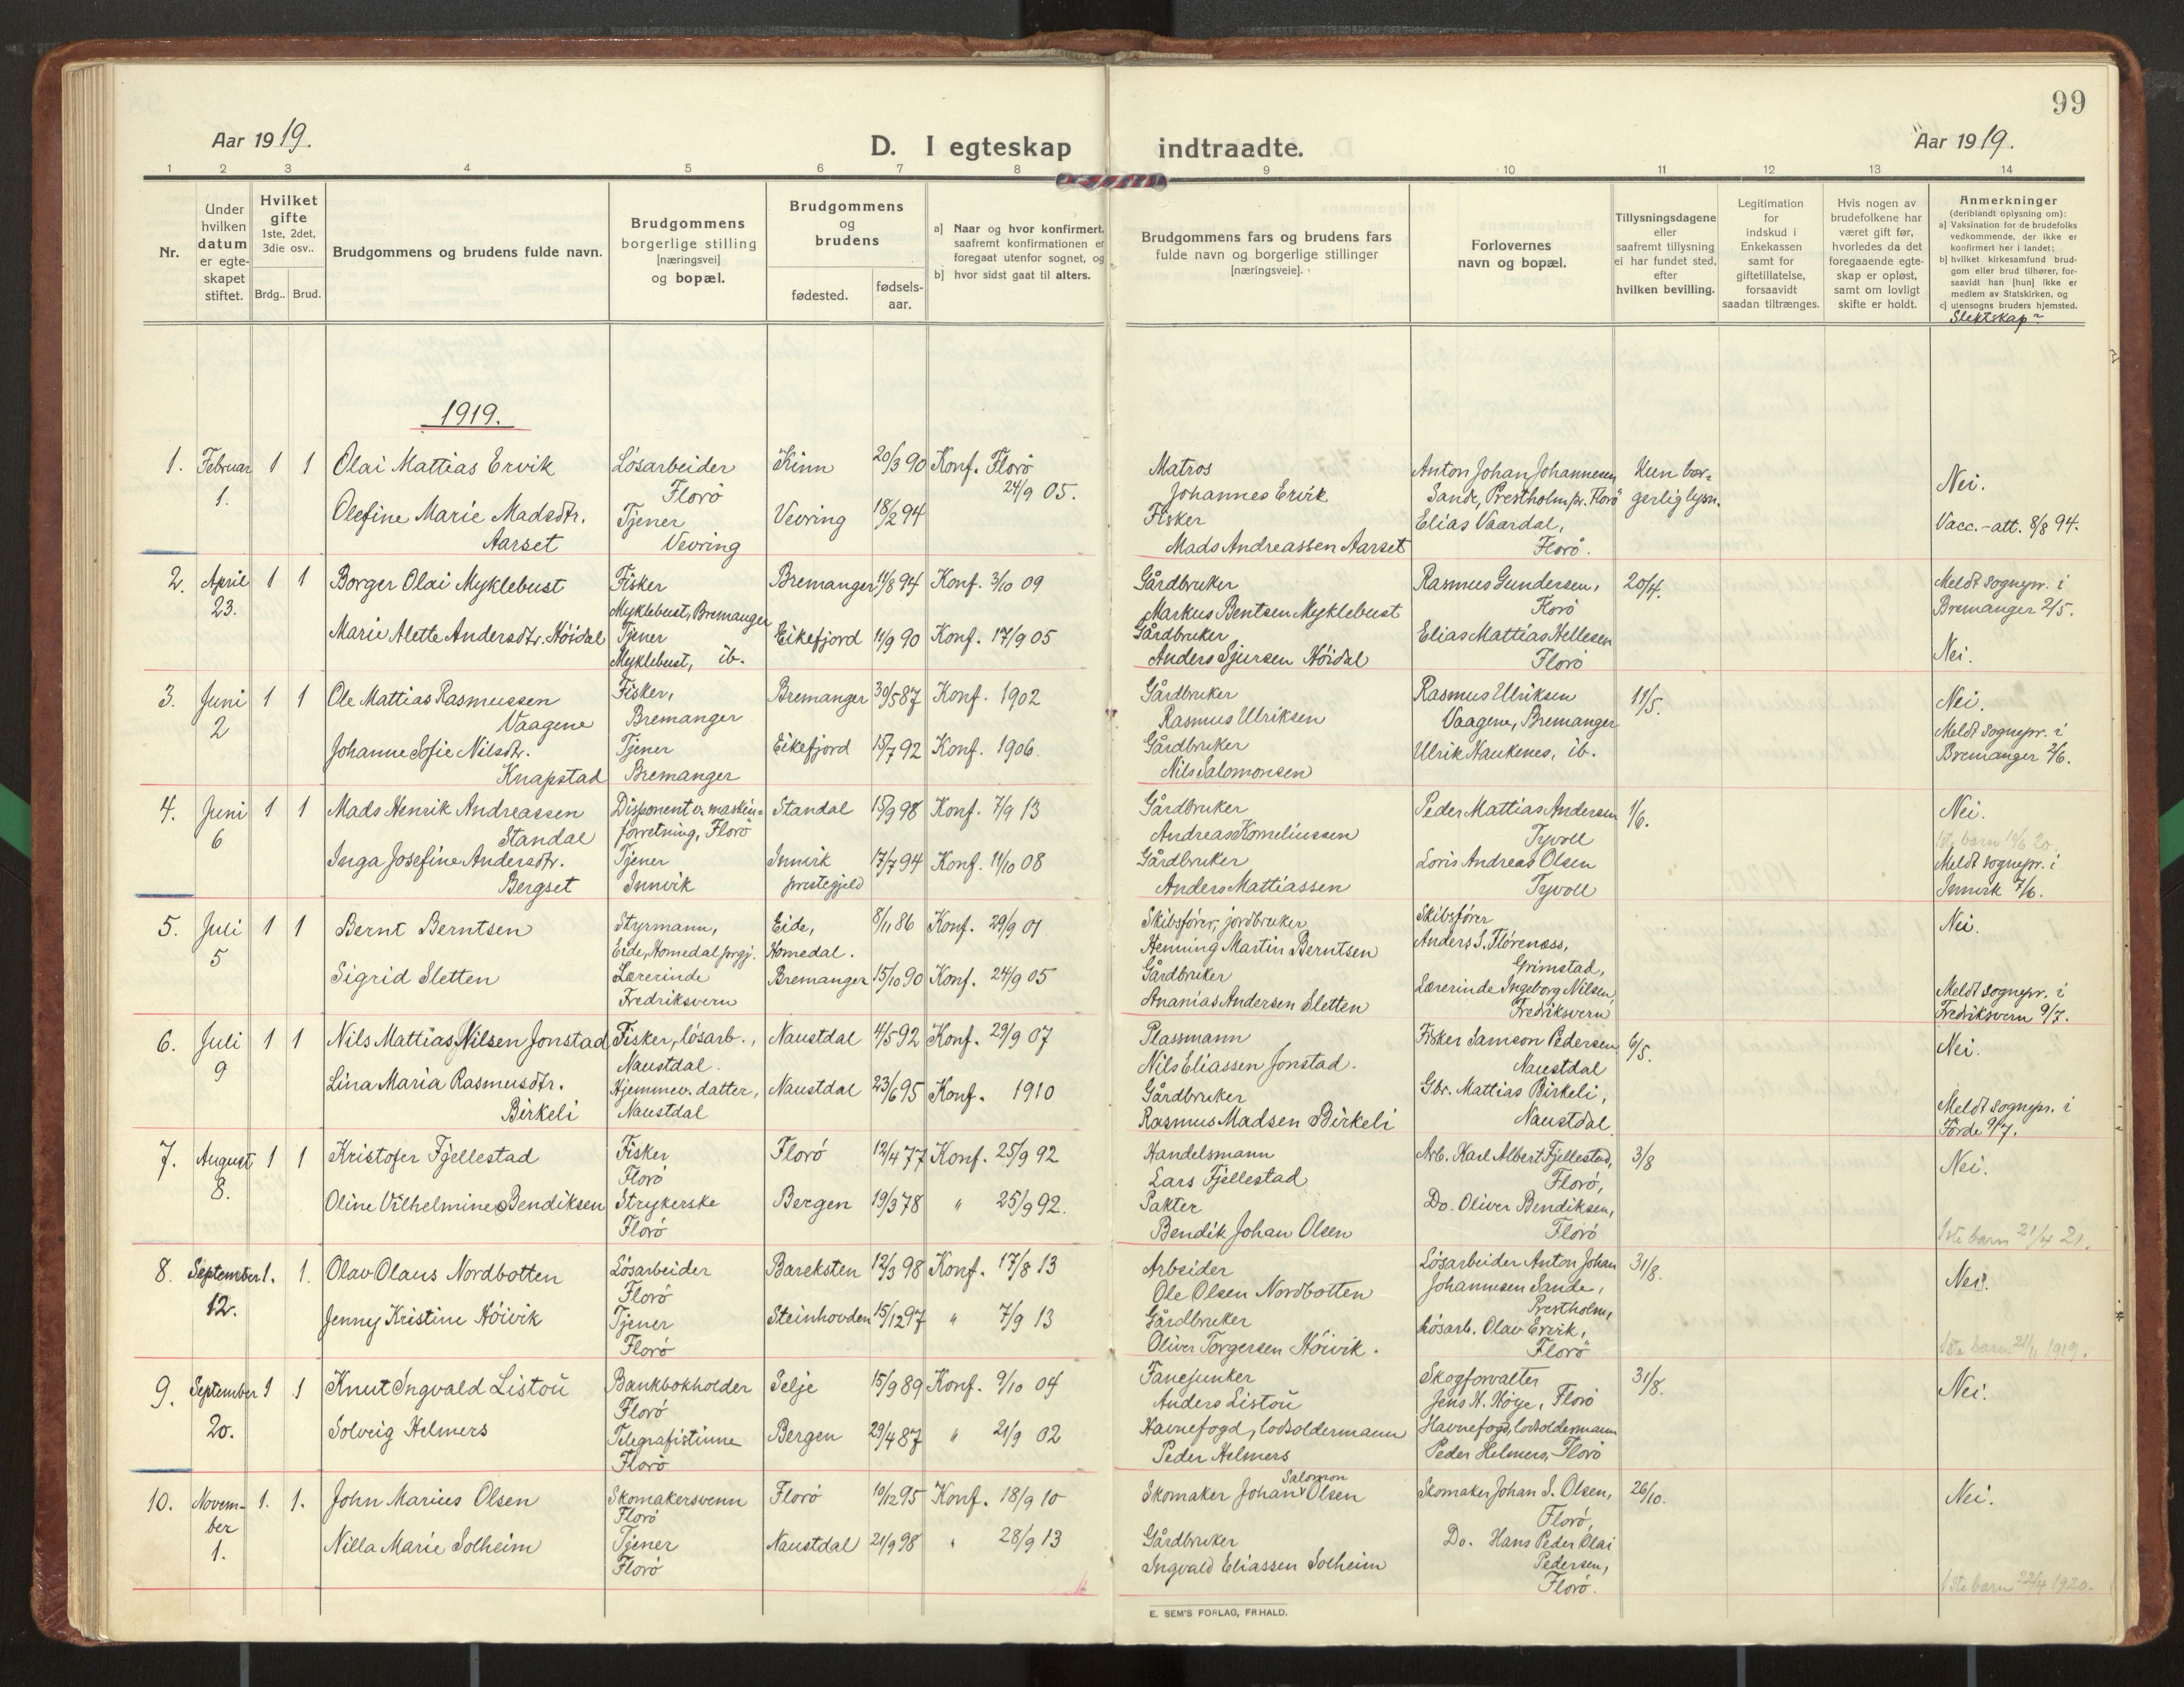 99
Aar 1919.
D. I egteskap indtraadte.
Aar 1919.
1 2 3 4 5 6 7 8 9 10 11 12 13 14
Nr.
Under hvilken datum er egte-skapet stiftet.
Hvilket gifte 1ste, 2det, 3die osv..
Brdg.. Brud.
Brudgommens og brudens fulde navn.
Brudgommens borgerlige stilling [næringsvei] og bopæl.
Brudgommens og brudens
fødested. fødsels-aar.
a] Naar og hvor konfirmert, saafremt konfirmationen er foregaat utenfor sognet, og
b] hvor sidst gaat til alters.
Brudgommens fars og brudens fars fulde navn og borgerlige stillinger [næringsveie].
Forlovernes navn og bopæl.
Tillysningsdagene eller saafremt tillysning ei har fundet sted, efter hvilken bevilling.
Legitimation for indskud i Enkekassen samt for giftetillatelse, forsaavidt saadan tiltrænges.
Hvis nogen av brudefolkene har været gift før, hvorledes da det foregaaende egte-skap er opløst, samt om lovligt skifte er holdt.
Anmerkninger
(deriblandt oplysning om):
a) Vaksination for de brudefolks vedkommende, der ikke er konfirmert her i landet;
b) hvilket kirkesamfund brud-gom eller brud tilhører, for-saavidt han [hun] ikke er medlem av Statskirken, og
c) utensogns bruders hjemsted.
Slektskap?
1919.
1. Februar 1. 1 1
Olai Mattias Ervik
Løsarbeider Florø
Kinn 20/3 90 Konf. Florø 24/9 05.
Matros Johannes Ervik
Anton Johan Johannesen Sande, Prestholm pr. Florø
Kun bor-gerlig lysn.
Nei.
Olefine Marie Madsdtr. Aarset
Tjener Vevring
Vevring 18/2 94
Fisker Mads Andreassen Aarset
Elias Vaardal, Florø.
Vacc.-att. 8/8 94.
2. April 23. 1 1
Borger Olai Myklebust
Fisker Myklebust, Bremanger
Bremanger 11/8 94 Konf. 3/10 09
Gårdbruker Markus Bentsen Myklebust
Rasmus Gundersen, Florø
20/4.
Meldt sognepr. i Bremanger 2/5.
Marie Alette Andersdtr. Høidal
Tjener Myklebust, ib.
Eikefjord 11/9 90 Konf. 17/9 05
Gårdbruker Anders Sjursen Høidal
Elias Mattias Hellesen Florø
Nei.
3. Juni 2 1 1
Ole Mattias Rasmussen Vaagene
Fisker, Bremanger
Bremanger 30/5 87 Konf. 1902
Gårdbruker Rasmus Ulriksen
Rasmus Ulriksen Vaagene, Bremanger
11/5.
Nei.
Johanne Sofie Nilsdtr. Knapstad
Tjener Bremanger
Eikefjord 15/7 92 Konf. 1906.
Gårdbruker Nils Salomonsen
Ulrik Haukenes, ib.
Meldt sognepr. i Bremanger 2/6.
4. Juni 6 1 1
Mads Henrik Andreassen Standal
Disponent v. maskin-forretning, Florø
Standal 15/9 98 Konf. 7/9 13
Gårdbruker Andreas Korneliussen
Peder Mattias Andersen Tyvoll
1/6.
Nei.
1ste barn 19/6 20.
Inga Josefine Andersdtr. Bergset
Tjener Innvik
Innvik prestegjeld 17/7 94 Konf. 11/10 08
Gårdbruker Anders Mattiassen
Loris Andreas Olsen Tyvoll
Meldt sognepr. i Innvik 7/6.
5. Juli 5 1 1
Bernt Berntsen
Styrmann, Eide, Homedal prgj.
Eide, Homedal. 8/11 86 Konf. 29/9 01
Skibsfører, jordbruker Henning Martin Berntsen
Skibsfører Anders S. Florenæss, Grimstad,
Nei.
Sigrid Sletten
Lærerinde Fredriksvern
Bremanger 15/10 90 Konf. 24/9 05
Gårdbruker Ananias Andersen Sletten
Lærerinde Ingeborg Nilsen, Fredriksvern
Meldt sognepr. i Fredriksvern 9/7.
6. Juli 9 1 1
Nils Mattias Nilsen Jonstad
Fisker, løsarb., Naustdal.
Naustdal 4/5 92 Konf. 29/9 07
Plassmann Nils Eliassen Jonstad.
Fisker Samson Pedersen Naustdal
6/5.
Nei.
Lina Maria Rasmusdtr. Birkeli
Hjemmev. datter, Naustdal
Naustdal 23/6 95 Konf. 1910
Gårdbruker Rasmus Madsen Birkeli
Gbr. Mattias Birkeli, Naustdal
Meldt sognepr. i Førde 9/7.
7. August 8. 1 1
Kristofer Fjellestad
Fisker Florø
Florø 12/4 77 Konf. 25/9 92
Handelsmann Lars Fjellestad
Arb. Karl Albert Fjellestad, Florø,
3/8
Nei.
Oline Vilhelmine Bendiksen
Strykerske Florø
Bergen 19/3 78 " 25/9 92.
Pakter Bendik Johan Olsen
Do. Oliver Bendiksen, Florø
1ste barn 21/4 21.
8. September 12. 1. 1.
Olav Olaus Nordbotten
Løsarbeider Florø
Bareksten 12/3 98 Konf. 17/8 13
Arbeider Ole Olsen Nordbotten
Løsarbeider Anton Johan Johannesen Sande, Prestholm,
31/8.
Nei.
Jenny Kristine Høivik
Tjener Florø
Steinhovden 15/12 97 " 7/9 13
Gårdbruker Oliver Torgersen Høivik.
Løsarb. Olav Ervik, Florø
1ste barn 21/11 1919.
9. September 20. 1 1
Knut Ingvald Listou
Bankbokholder Florø
Selje 15/9 89 Konf. 9/10 04
Fanejunker Anders Listou
Skogforvalter Jens H. Høye, Florø
31/8.
Nei.
Solveig Helmers
Telegrafistinne Florø
Bergen 29/4 87 " 21/9 02
Havnefogd, lodsoldermann Peder Helmers
Havnefogd, lodsoldermann Peder Helmers, Florø
10. Novem-ber 1. 1. 1.
John Marius Olsen
Skomakersvenn Florø
Florø 10/12 95 Konf. 18/9 10
Skomaker Johan Salomon Olsen
Skomaker Johan S. Olsen, Florø,
26/10.
Nei.
Nilla Marie Solheim
Tjener Florø
Naustdal 21/9 98 " 28/9 13
Gårdbruker Ingvald Eliassen Solheim
Do. Hans Peder Olai Pedersen, Florø.
1ste barn 22/4 1920.
E. SEM'S FORLAG, FRHALD.